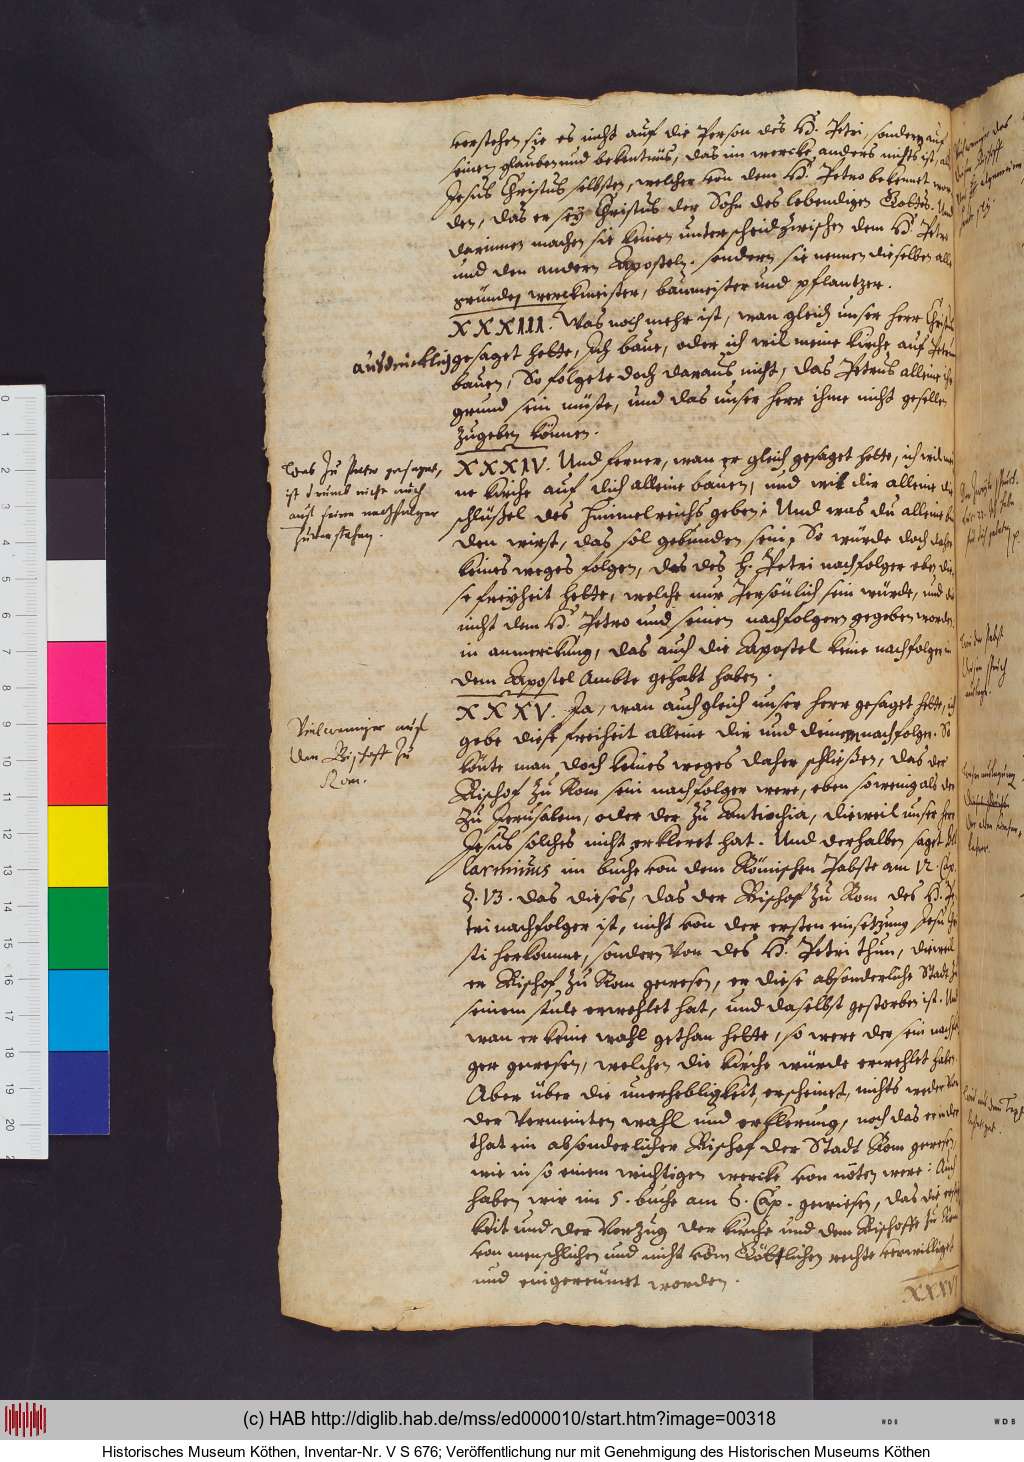 verstehen sie es nicht auf die Person des H. Petri, sondern auf
seinen glauben und bekentnüs, das im wercke anders nichts ist, als
Jesus Christus selbsten, welcher von dem H. Petro bekennet wor
den, das er sey Christus der Sohn des lebendigen Gottes. Und
darinnen machen sie keinen unterscheid zwischen dem H. Petro
und den andern Aposteln. sondern sie nennen dieselben alle
gründe, werckmeister, baumeister und pflantzer.
XXXIII. Was noch mehr ist, wan gleich unser herr Christus
ausdrücklich gesaget hette, Ich baue, oder ich wil meine kirche auf Petrum
bauen, So folgete doch daraus nicht, das Petrus alleine ihr
grund sein müste, und das unser herr ihme nicht gesellen
zugeben können.
XXXIV. Und ferner, wan er gleich gesaget hette, ich wil mei
ne kirche auf dich alleine bauen, und wil dir alleine die
schlüßel des himmelreichs geben; Und was du alleine bin
den wirst, das sol gebunden sein, So würde doch daher
keines weges folgen, das des H. Petri nachfolger eben die
se freyheit hette, welche nur Persönlich sein würde, und die
nicht dem H. Petro und seinen nachfolgern gegeben worden,
in anmerckung, das auch die Apostel keine nachfolger in
dem Apostel Ambte gehabt haben.
Was zu Petro gesaget,
ist drumb nicht auch
auf seine nachfolger
zuverstehen.
XXXV. Ja, wan auch gleich unser herr gesaget hette, ich
gebe diese freiheit alleine dir und deinen nachfolger. So
könte man doch keines weges daher schließen, das der
Bischof zu Rom sein nachfolger were, eben so wenig als der
zu Jerusalem, oder der zu Antiochia, dieweil unser herr
Jesus solches nicht erkleret hat. Und derhalben saget Bel
larminus im buche von dem Römischen Pabste am 12. Cap.
§. V3. das dieses, das der Bischof zu Rom des H. Pe
tri nachfolger ist, nicht von der ersten einsetzung Jesu Chri
sti herkomme, sondern von des H. Petri thun, dieweil
er Bischof zu Rom gewesen, er diese absonderliche Stadt zu
seinem stule erwehlet hat, und daselbst gestorben ist. Und
wan er keine wahl gethan hette, so were der sein nachfol
ger gewesen, welchen die kirche würde erwehlet haben.
Aber über die unerhebligkeit, erscheinet, nichts weder von
der vermeinten wahl und erklerung, noch das er in der
that ein absonderlicher Bischof der Stadt Rom gewesen,
wie in so einem wichtigen wercke von nöten were: Auch
haben wir im 5. buche am 6. Cap. gewiesen, das die
keit und der Vorzug der kirche und dem Bischoffe zu Rom
von menschlichen und nicht vom Göttlichen rechte verwilliget
und eingereümet worden.
Vielweniger auf
den Bischoff zu
Rom.
XXXVI
(c) HAB http://diglib.hab.de/mss/ed000010/start.htm?image=00318
Historisches Museum Köthen, Inventar-Nr. V S 676; Veröffentlichung nur mit Genehmigung des Historischen Museums Köthen